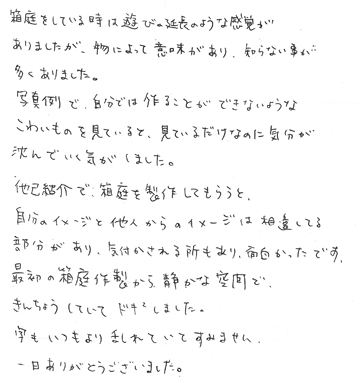 箱庭をしている時は遊びの延長のような感覚が
ありましたが、物によって意味があり、知らない事が
多くありました。
写真例で、自分では作ることができないような
こわいものを見ていると、見ているだけなのに気分が
沈んでいく気がしました。
他己紹介で、箱庭を製作してもらうと、
自分のイメージと他人からのイメージは相違してる
部分があり、気付かされる所もあり、面白かったです。
最初の箱庭作製から、静かな空間で、
きんちょうしていてドキ²しました。
字もいつもより乱れていてすみません。
一日ありがとうございました。